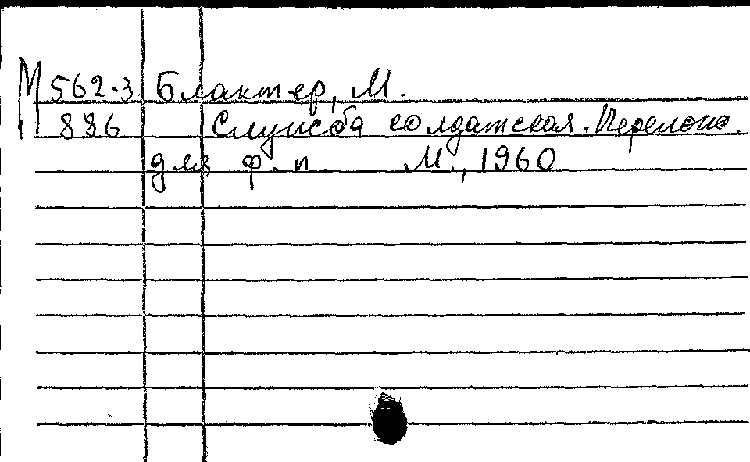 М 562-3 Блантер, М.
886 Служба солдатская. Перелож.
для ф.п. М., 1960